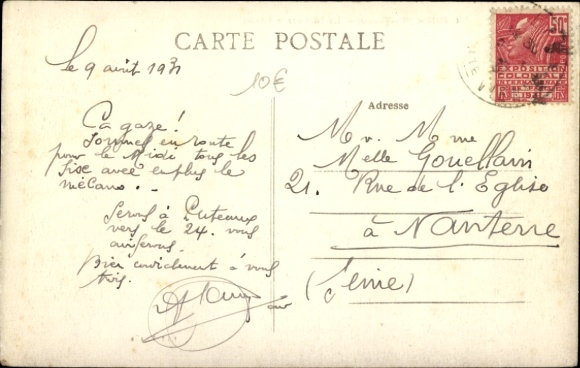 CARTE POSTALE
le 9 avril 1931
10€
Ca gaze!
Sommes en route
pour le Midi tous les
six avec en plus le
mécano.
Serons à Puteaux
vers le 24. vous
aviserons.
Bien cordialement à vous
trois.
Adresse
Mr. Mme
Melle Gouellain
21. Rue de l'Eglise
à Nanterre
(Seine)
50c
EXPOSITION
COLONIALE
INTERNATIONALE
PARIS